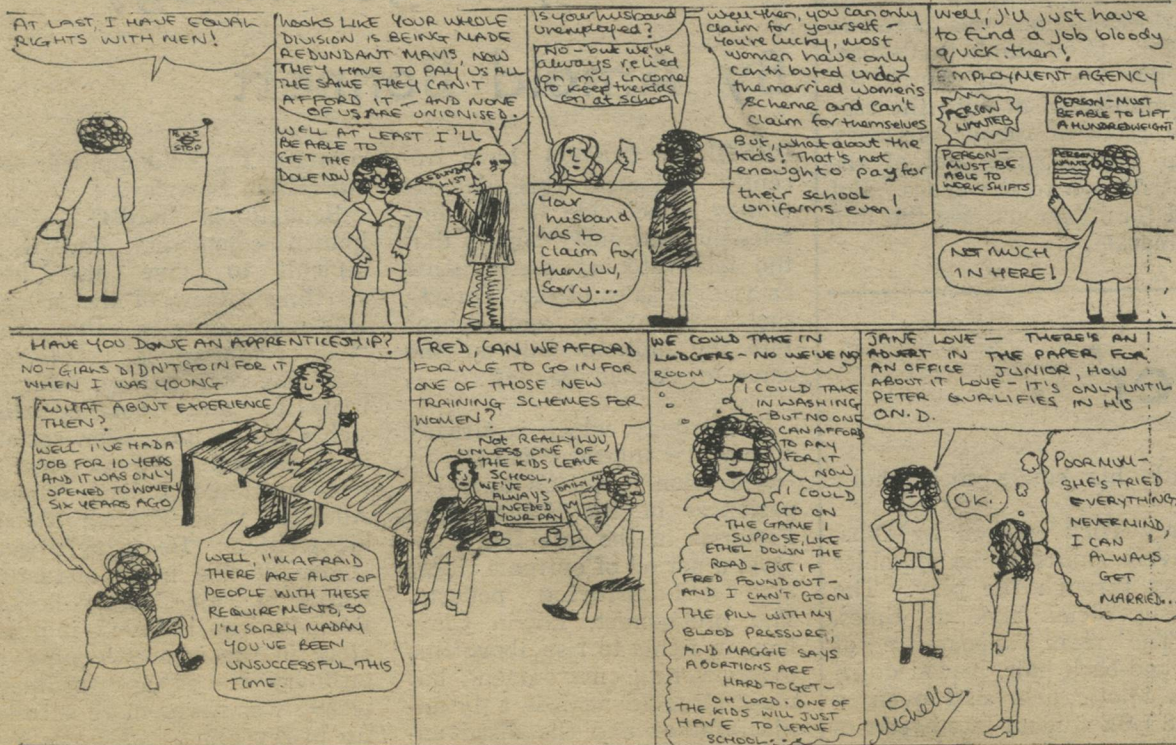 AT LAST, I HAVE EQUAL
RIGHTS WITH MEN!
BUS
STOP
LOOKS LIKE YOUR WHOLE
DIVISION IS BEING MADE
REDUNDANT MAVIS, NOW
THEY HAVE TO PAY US ALL
THE SAME THEY CAN'T
AFFORD IT - AND NONE
OF US ARE UNIONISED.
WELL AT LEAST I'LL
BE ABLE TO
GET THE
DOLE NOW
LIST
Is your husband
unemployed?
NO - but we've
always relied
on my income
to keep the kids
on at school
Well then, you can only
claim for yourself -
You're lucky, most
women have only
contributed under
the married women's
scheme and can't
claim for themselves
But, what about the
kids! That's not
enough to pay for
their school
uniforms even!
Your
husband
has to
claim for
them luv,
sorry...
Well, I'll just have
to find a job bloody
quick then!
EMPLOYMENT AGENCY
PERSON
WANTED
PERSON - MUST
BE ABLE TO LIFT
A HUNDREDWEIGHT
PERSON -
MUST BE
ABLE TO
WORK SHIFTS
PERSON
WANTED
NOT MUCH
IN HERE!
HAVE YOU DONE AN APPRENTICESHIP?
NO - GIRLS DIDN'T GO IN FOR IT
WHEN I WAS YOUNG
WHAT ABOUT EXPERIENCE
THEN?
WELL I'VE HAD A
JOB FOR 10 YEARS
AND IT WAS ONLY
OPENED TO WOMEN
SIX YEARS AGO
WELL, I'M AFRAID
THERE ARE A LOT OF
PEOPLE WITH THESE
REQUIREMENTS, SO
I'M SORRY MADAM
YOU'VE BEEN
UNSUCCESSFUL THIS
TIME.
FRED, CAN WE AFFORD
FOR ME TO GO IN FOR
ONE OF THOSE NEW
TRAINING SCHEMES FOR
WOMEN?
NOT REALLY LUV,
UNLESS ONE OF
THE KIDS LEAVE
SCHOOL,
WE'VE
ALWAYS
NEEDED
YOUR PAY
DAILY
WE COULD TAKE IN
LODGERS - NO WE'VE NO
ROOM
I COULD TAKE
IN WASHING
- BUT NO ONE
CAN AFFORD
TO PAY
FOR IT
NOW
I COULD
GO ON
THE GAME I
SUPPOSE, LIKE
ETHEL DOWN THE
ROAD - BUT IF
FRED FOUND OUT -
AND I CAN'T GO ON
THE PILL WITH MY
BLOOD PRESSURE,
AND MAGGIE SAYS
ABORTIONS ARE
HARD TO GET -
OH LORD. ONE OF
THE KIDS WILL JUST
HAVE TO LEAVE
SCHOOL...
JANE LOVE - THERE'S AN
ADVERT IN THE PAPER FOR
AN OFFICE JUNIOR, HOW
ABOUT IT LOVE - IT'S ONLY UNTIL
PETER QUALIFIES IN HIS
O.N.D.
OK.
POOR MUM -
SHE'S TRIED
EVERYTHING
NEVERMIND,
I CAN
ALWAYS
GET
MARRIED...
Michelle